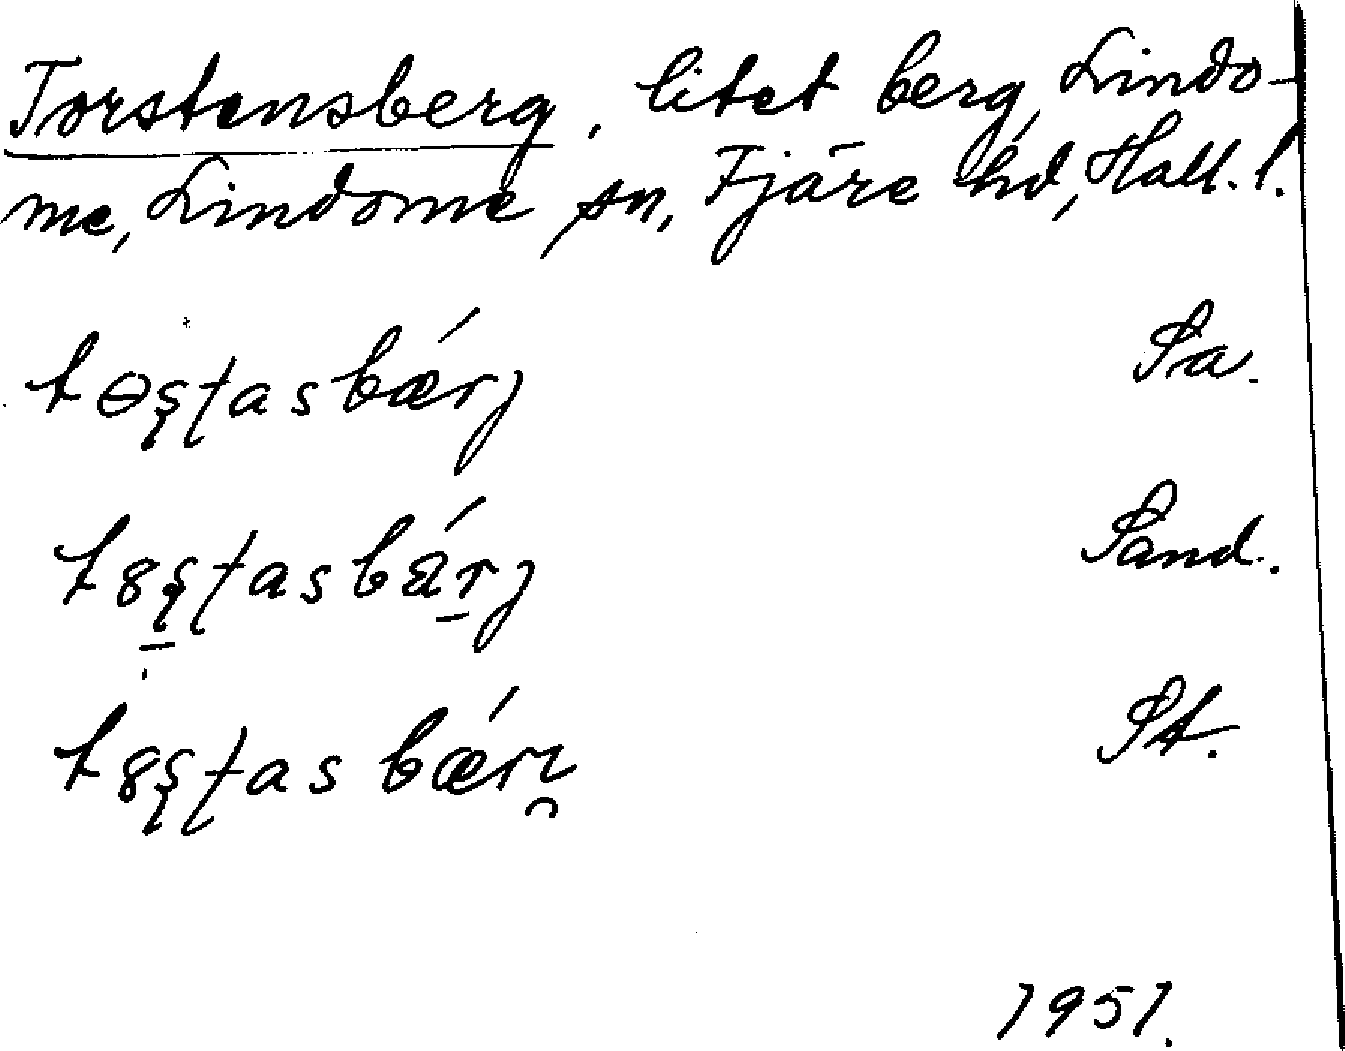 Torstensberg, litet berg, Lindo-
me, Lindome sn, Fjäre hd, Hall. l.
tɵʂʈasbǽrȷ Sa.
t8ʂʈasbä́rȷ Sand.
t8ʂʈasbǽrı̯ St.
1951.